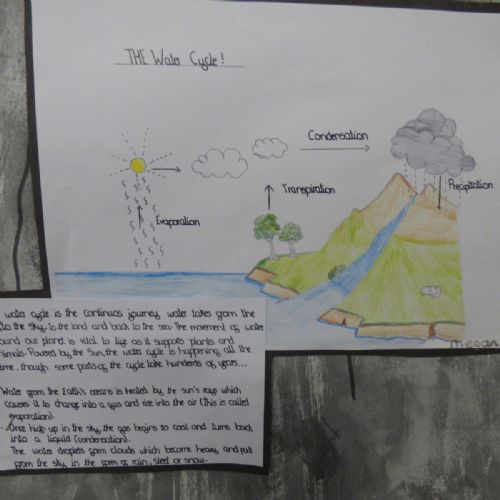 THE Water Cycle!
Condensation
Precipitation
Transpiration
Evaporation
megan
water cycle is the continuos journey water takes from the
to the sky, to the land and back to the sea. The movement of water
our planet is vital to life as it supports plants and
Powered by the Sun, the water cycle is happening all the
time, though some parts of the cycle take hundreds of years...
Water from the Earth's oceans is heated by the sun's rays which
causes it to change into a gas and rise into the air (this is called
evaporation).
Once high up in the sky, the gas begins to cool and turns back
into a liquid (condensation).
The water droplets form clouds which become heavy and fall
from the sky in the form of rain, sleet or snow.